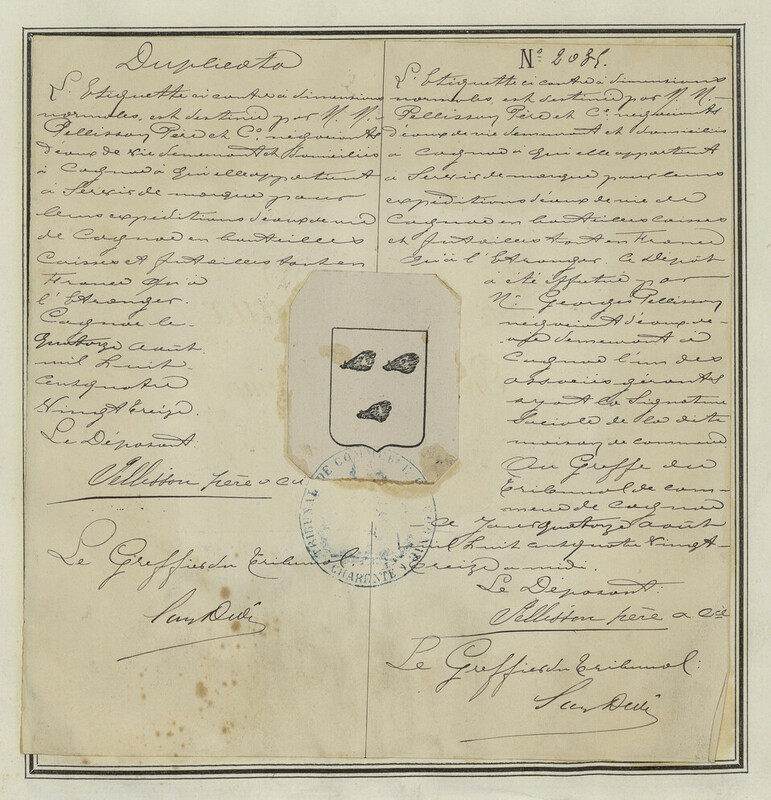 Duplicata
L'Etiquette ci contre à dimensions
normales, est destinée par M. M.
Pellisson Père et Cº. négociants
d'eaux de vie demeurant et domiciliés
à Cognac à qui elle appartient
à Servir de marque pour
leurs expéditions d'eaux de vie
de Cognac en bouteilles
Caisses et futailles tant en
France qu'à
l'Etranger.
Cognac le
quatorze Août
mil huit
cent quatre
Vingt Treize.
Le Déposant:
Pellisson père & Cie
Le Greffier du Tribunal
Nº 2035.
L'Etiquette ci contre à dimensions
normales, est destinée par M. M.
Pellisson Père et Cº. négociants
d'eaux de vie demeurant et domiciliés
à Cognac à qui elle appartient
à Servir de marque pour leurs
expéditions d'eaux de vie de
Cognac en bouteilles caisses
et futailles tant en France
qu'à l'Etranger. Ce Dépôt
a été effectué par
M. Georges Pellisson
négociant d'eaux de
vie demeurant à
Cognac l'un des
associés gérants
ayant la Signature
Sociale de la dite
maison de commerce
Au Greffe du
Tribunal de com-
merce de Cognac
Ce Jour quatorze Août
mil huit cent quatre Vingt
Treize à midi.
Le Déposant:
Pellisson père & Cie
Le Greffier du Tribunal:
TRIBUNAL DE COMMERCE DE COGNAC
CHARENTE